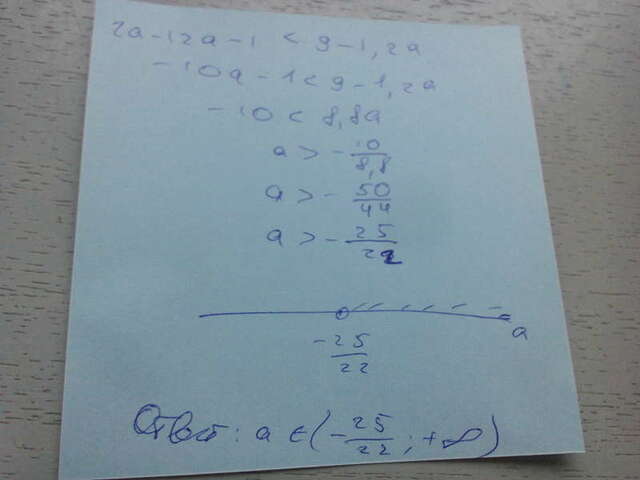 2a-12a-1 < 9-1,2a
-10a-1<9-1,2a
-10 < 8,8a
a > - 10/8,8
a > - 50/44
a > - 25/22
-25/22
a
Ответ: a ∈ (- 25/22 ; +∞)